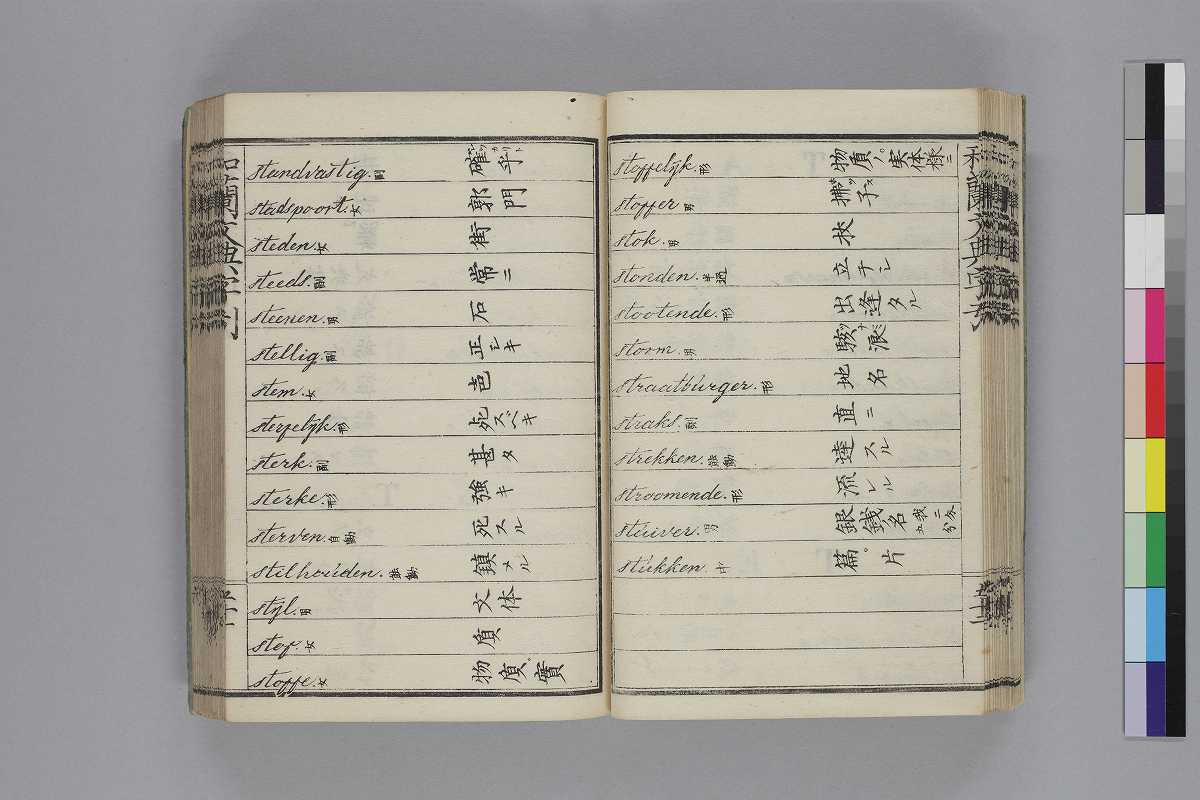 standvastig. 副 確乎
stadspoort. 女 郭門
steden. 女 街
steeds. 副 常ニ
steenen. 男 石
stellig. 副 正シキ
stem. 女 邑
sterfelijk. 形 死スベキ
sterk. 副 甚タ
sterke. 形 強キ
sterven. 自動 死スル
stilhouden. 鎮メル
stijl. 男 文体
stof. 女 質
stoffe. 女 物質。實
stoffelijk. 形 物質ノ。実体様ニ
stoffer 男 拂子
stok. 男 杖
stonden. 半過 立チシ
stootende. 形 出逢タル
storm. 男
straatburger. 形 地名
straks. 副 直ニ
strekken. 達スル
stroomende. 形 流レル
stuiver. 男 銀銭名
stukken. 中 篇。片